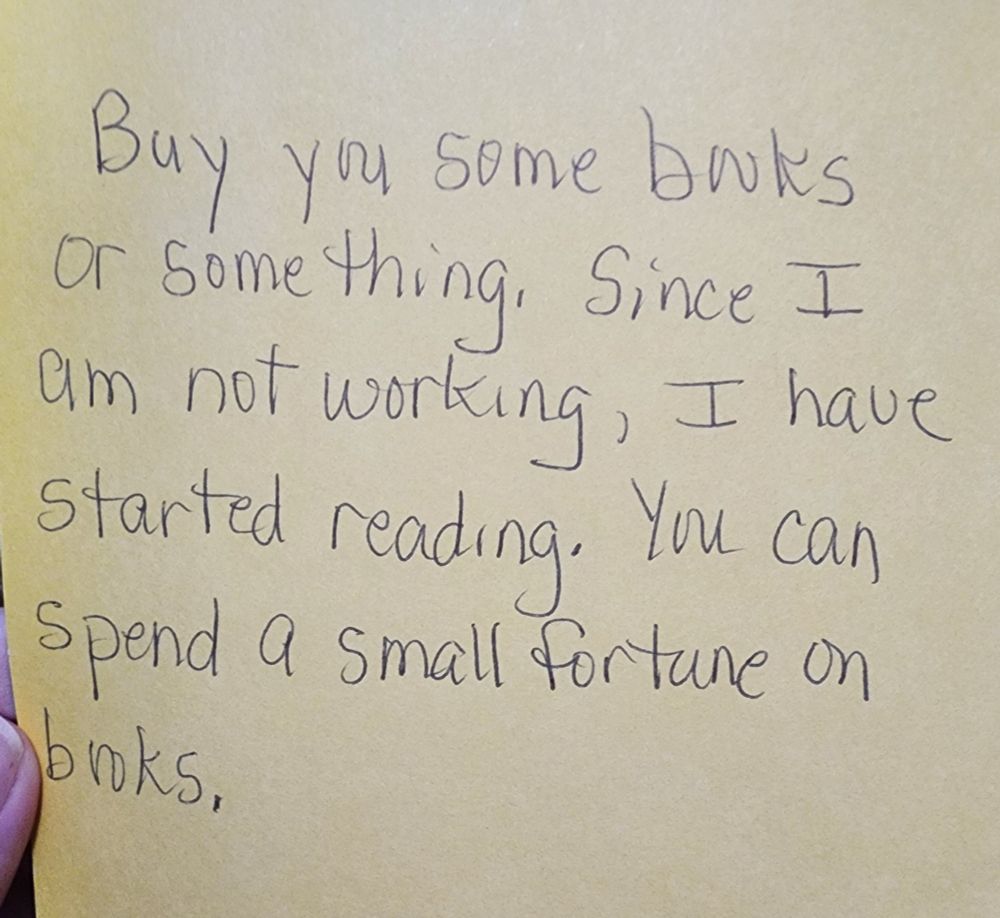 Buy you some books
or something. Since I
am not working, I have
started reading. You can
spend a small fortune on
books.